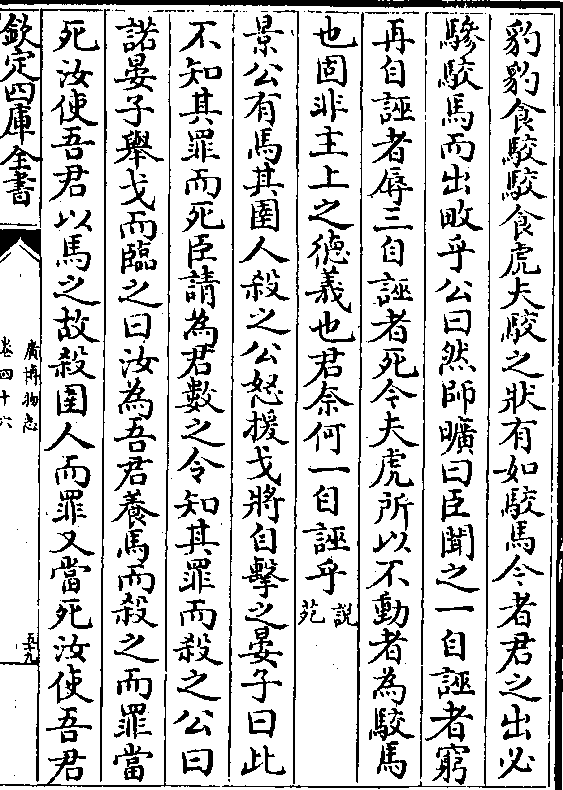 豹豹食駮駮食虎夫駮之狀有如駮馬今者君之出必
驂駮馬而出畋乎公曰然師曠曰臣聞之一自誣者窮
再自誣者辱三自誣者死今夫虎所以不動者為駮馬
也固非主上之德義也君奈何一自誣乎說苑
景公有馬其圉人殺之公怒援戈將自擊之晏子曰此
不知其罪而死臣請為君數之令知其罪而殺之公曰
諾晏子舉戈而臨之曰汝為吾君養馬而殺之而罪當
死汝使吾君以馬之故殺圉人而罪又當死汝使吾君
欽定四庫全書
廣博物志
卷四十六
五十九